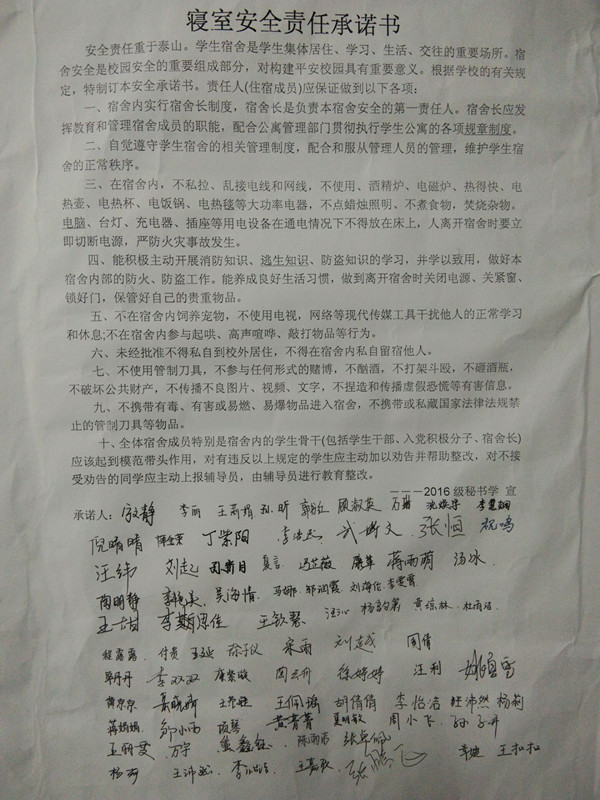 寝室安全责任承诺书
安全责任重于泰山。学生宿舍是学生集体居住、学习、生活、交往的重要场所。宿
舍安全是校园安全的重要组成部分，对构建平安校园具有重要意义。根据学校的有关规
定，特制订本安全承诺书。责任人(住宿成员)应保证做到以下各项:
一、宿舍内实行宿舍长制度，宿舍长是负责本宿舍安全的第一责任人。宿舍长应发
挥教育和管理宿舍成员的职能，配合公寓管理部门贯彻执行学生公寓的各项规章制度。
二、自觉遵守学生宿舍的相关管理制度，配合和服从管理人员的管理，维护学生宿
舍的正常秩序。
三、在宿舍内，不私拉、乱接电线和网线，不使用、酒精炉、电磁炉、热得快、电
热壶、电热杯、电饭锅、电热毯等大功率电器，不点蜡烛照明、不煮食物，焚烧杂物。
电脑、台灯、充电器、插座等用电设备在通电情况下不得放在床上，人离开宿舍时要立
即切断电源，严防火灾事故发生。
四、能积极主动开展消防知识、逃生知识、防盗知识的学习，并学以致用，做好本
宿舍内部的防火、防盗工作。能养成良好生活习惯，做到离开宿舍时关闭电源、关紧窗、
锁好门，保管好自己的贵重物品。
五、不在宿舍内饲养宠物，不使用电视，网络等现代传媒工具干扰他人的正常学习
和休息;不在宿舍内参与起哄、高声喧哗、敲打物品等行为。
六、未经批准不得私自到校外居住，不得在宿舍内私自留宿他人。
七、不使用管制刀具，不参与任何形式的赌博，不酗酒，不打架斗殴，不砸酒瓶，
不破坏公共财产，不传播不良图片、视频、文字，不捏造和传播虚假恐慌等有害信息。
九、不携带有毒、有害或易燃、易爆物品进入宿舍，不携带或私藏国家法律法规禁
止的管制刀具等物品。
十、全体宿舍成员特别是宿舍内的学生骨干(包括学生干部、入党积极分子、宿舍长)
应该起到模范带头作用，对有违反以上规定的学生应主动加以劝告并帮助整改，对不接
受劝告的同学应主动上报辅导员，由辅导员进行教育整改。
---2016级秘书学 宣
承诺人: 李丽 顾淑英
倪晴晴 丁紫阳 武梦文 张恒 祝鸣
汪纬 刘起 夏言 蒋雨萌 汤冰
陶明静 吴海情 马娜 李雯雯
王甜 李颜思佳 王钦慧 汪沁 黄琼林
程露露 付贵 宋雨 刘越成 周倩
毕丹丹 李双双 周云升 徐婷婷 汪利
王佩瑶 胡倩倩 李怡洁 汪沛然 杨莉
蒋娟娟 邹小雨 黄菁菁 夏明敏 周小飞
万宇 陈雨雨
杨珂 王嘉欣 王和和